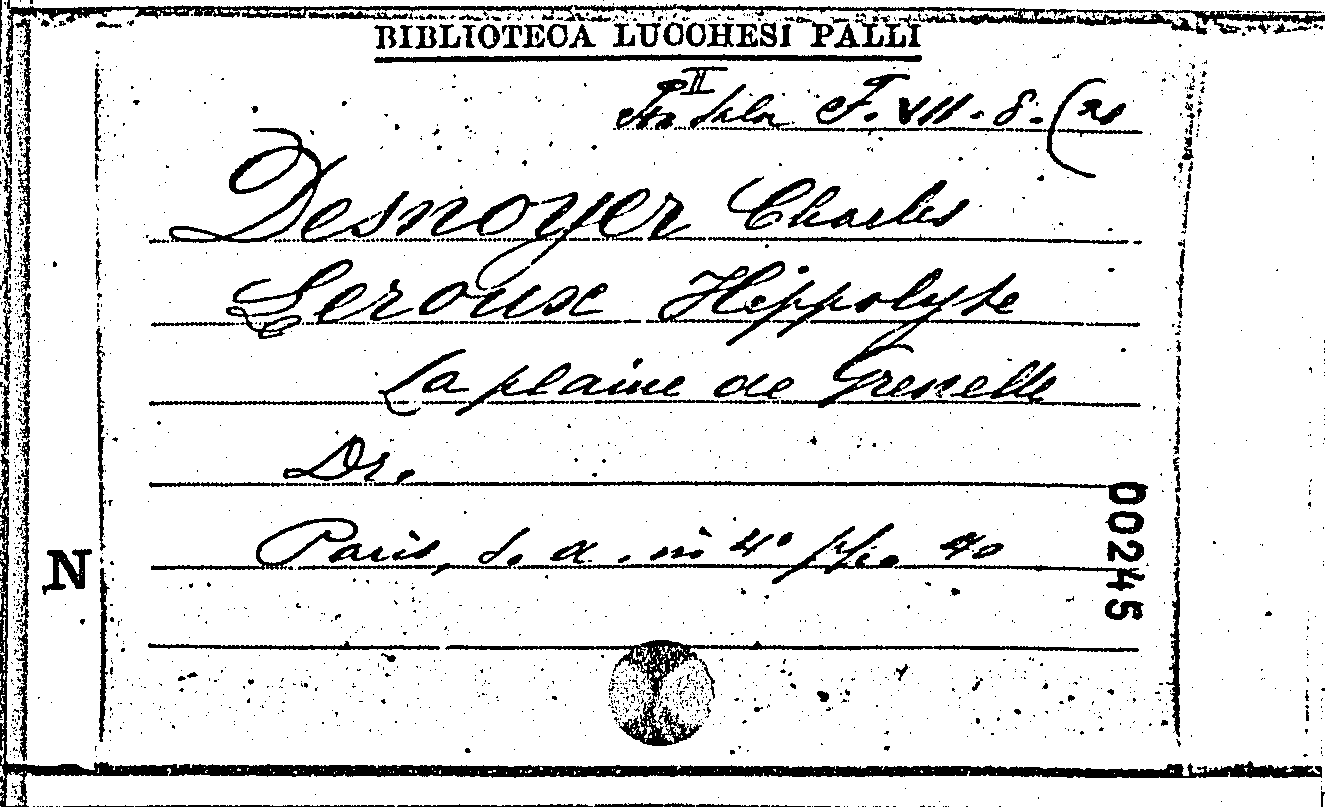 BIBLIOTECA LUCCHESI PALLI
II
F. VII. 8. (20
Desnoyer Charles
Leroux Hippolyte
La plaine de Grenelle
Dr.
Paris, s. a. in 4° pp. 40
N
00245